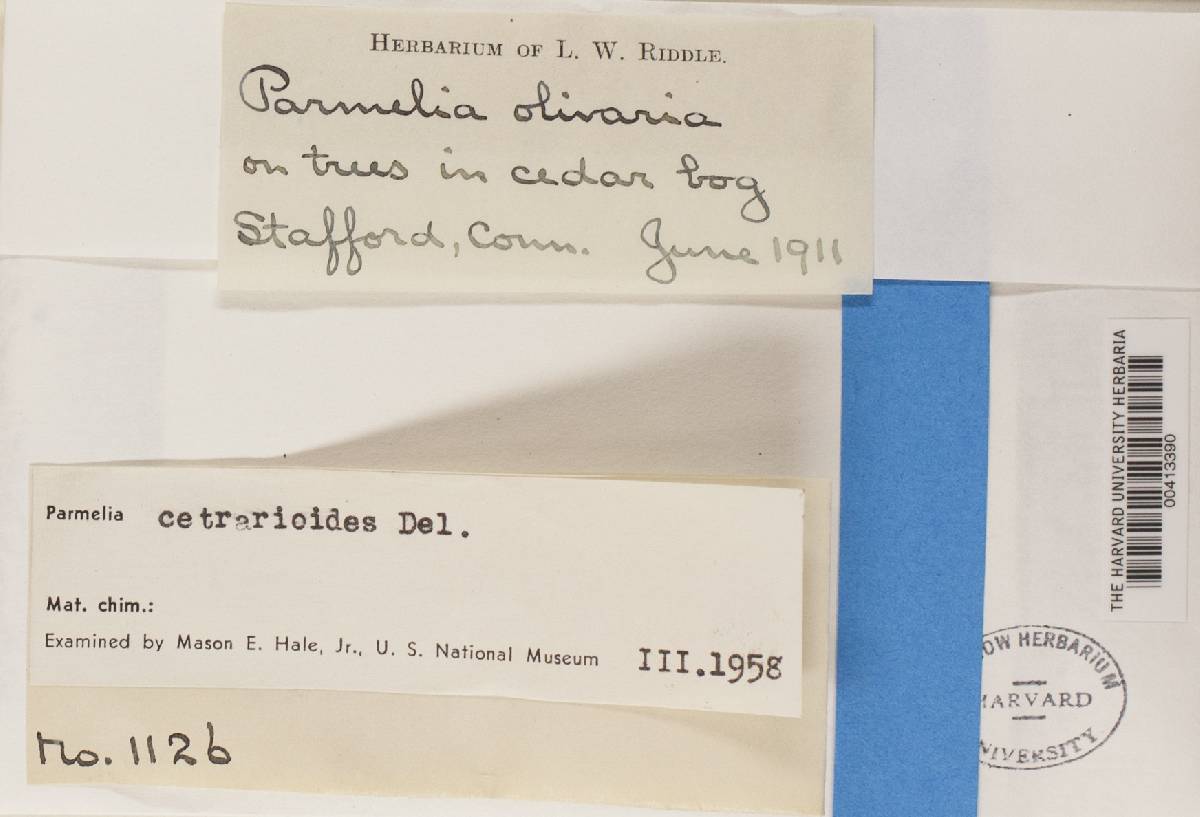 HERBARIUM OF L. W. RIDDLE.
Parmelia olivaria
on trees in cedar bog
Stafford, Conn. June 1911
Parmelia cetrarioides Del.
Mat. chim.:
Examined by Mason E. Hale, Jr., U. S. National Museum III.1958
No. 1126
THE HARVARD UNIVERSITY HERBARIA
00413390
OW HERBARIUM
HARVARD
NIVERSITY